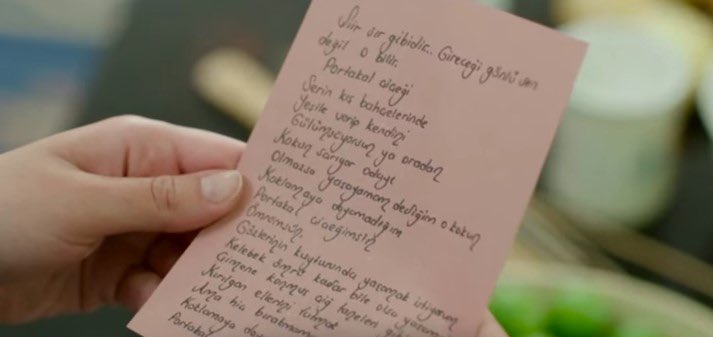 Şiir sır gibidir.. Gireceği gönlü sen
değil o bilir.
Portakal çiçeği
Serin kış bahçelerinde
Yeşile verip kendini
Gülümsüyorsun ya oradan
Kokun sarıyor odayı
Olmazsa yaşayamam dediğim o kokun
Koklamaya doyamadığım
Portakal çiçeğimsin
Ömrümsün
Gözlerinin kuytusunda yaşamak istiyorum
Kelebek ömrü kadar bile olsa yaşamak
konmuş çiğ taneleri
Kırılgan ellerini tutmak
Ama hiç bırakmamak
Koklamaya
Portakal